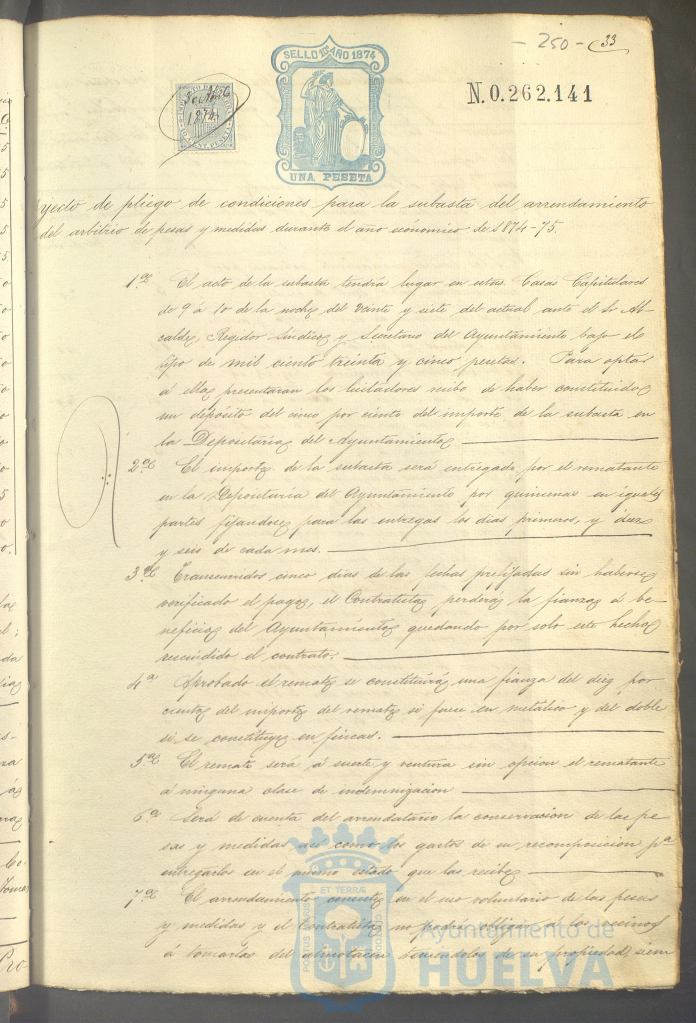 - 250 - 33
SELLO 10º AÑO 1874
UNA PESETA
N.0.262.141
1874
yecto de pliego de condiciones para la subasta del arrendamiento
del arbitrio de pesas y medidas durante el año económico de 1874-75.
1ª El acto de la subasta tendrá lugar en estas Casas Capitulares
de 9 á 10 de la noche del veinte y siete del actual ante el Sr Al-
calde, Regidor Sindico y Secretario del Ayuntamiento bajo el
tipo de mil ciento treinta y cinco pesetas. Para optar
á ella presentaran los licitadores recibo de haber constituido
un depósito del cinco por ciento del importe de la subasta en
la Depositaria del Ayuntamiento
2ª El importe de la subasta será entregado por el rematante
en la Depositaria del Ayuntamiento por quincenas en iguales
partes fijandose para las entregas los dias primeros, y diez
y seis de cada mes.
3ª Transcurridos cinco dias de las fechas prefijadas sin haberse
verificado el pago, el Contratista perderá la fianza á be-
neficio del Ayuntamiento quedando por solo este hecho
rescindido el contrato.
4ª Aprobado el remate se constituirá una fianza del diez por
ciento del importe del remate si fuese en metálico y del doble
si se constituye en fincas.
5ª El remate será á suerte y ventura sin opcion el rematante
á ninguna clase de indemnizacion
6ª Será de cuenta del arrendatario la conservacion de las pe-
sas y medidas asi como los gastos de su recomposicion pª
entregarlos en el mismo estado que las recibe
7ª El arrendamiento consiste en el uso voluntario de las pesas
y medidas y el Contratista no podrá obligar á los vecinos
á tomarlas del almotacen teniendolos de su propiedad, siem
PORTUS MARIS ET TERRÆ CUSTODIA
Ayuntamiento de
HUELVA